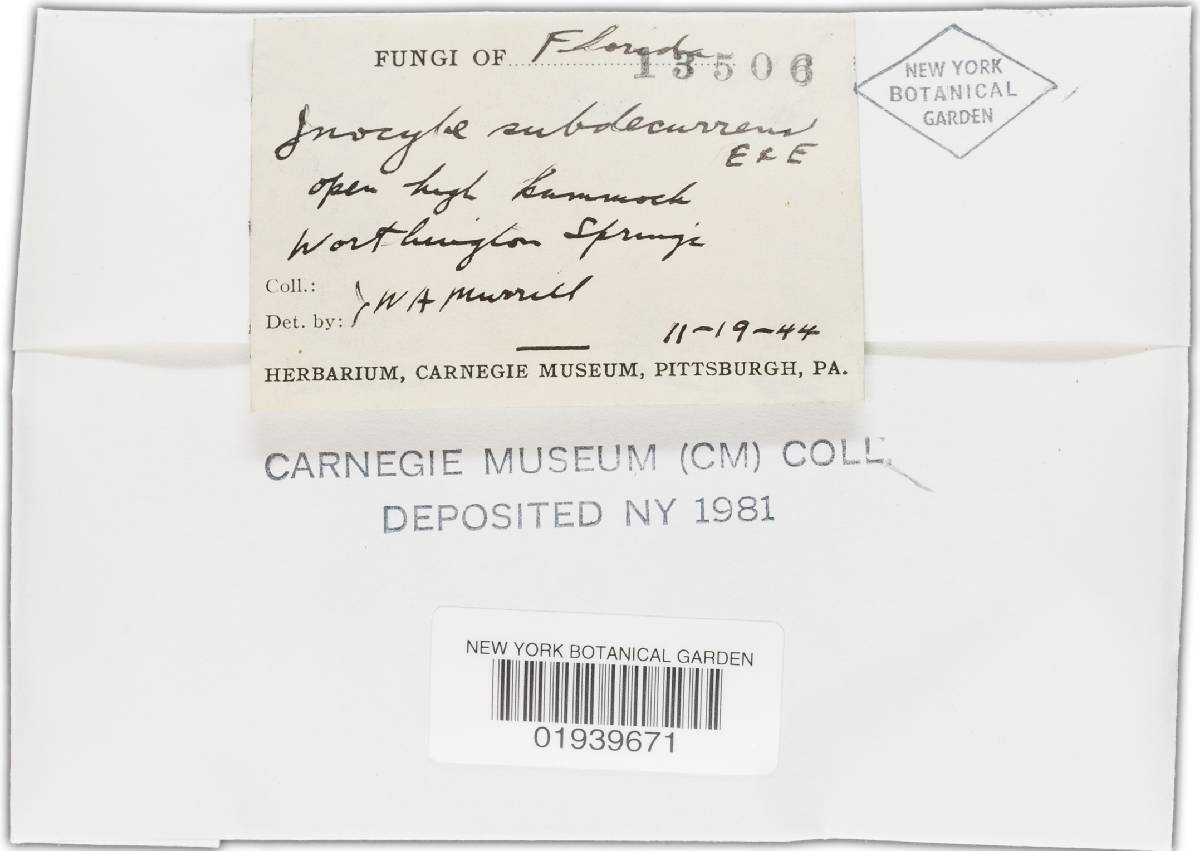 FUNGI OF Florida
13506
Inocybe subdecurrens
E & E
open high hammock
Worthington Springs
Coll.:
Det. by: } W A Murrill
11-19-44
HERBARIUM, CARNEGIE MUSEUM, PITTSBURGH, PA.
NEW YORK
BOTANICAL
GARDEN
CARNEGIE MUSEUM (CM) COLL.
DEPOSITED NY 1981
NEW YORK BOTANICAL GARDEN
01939671